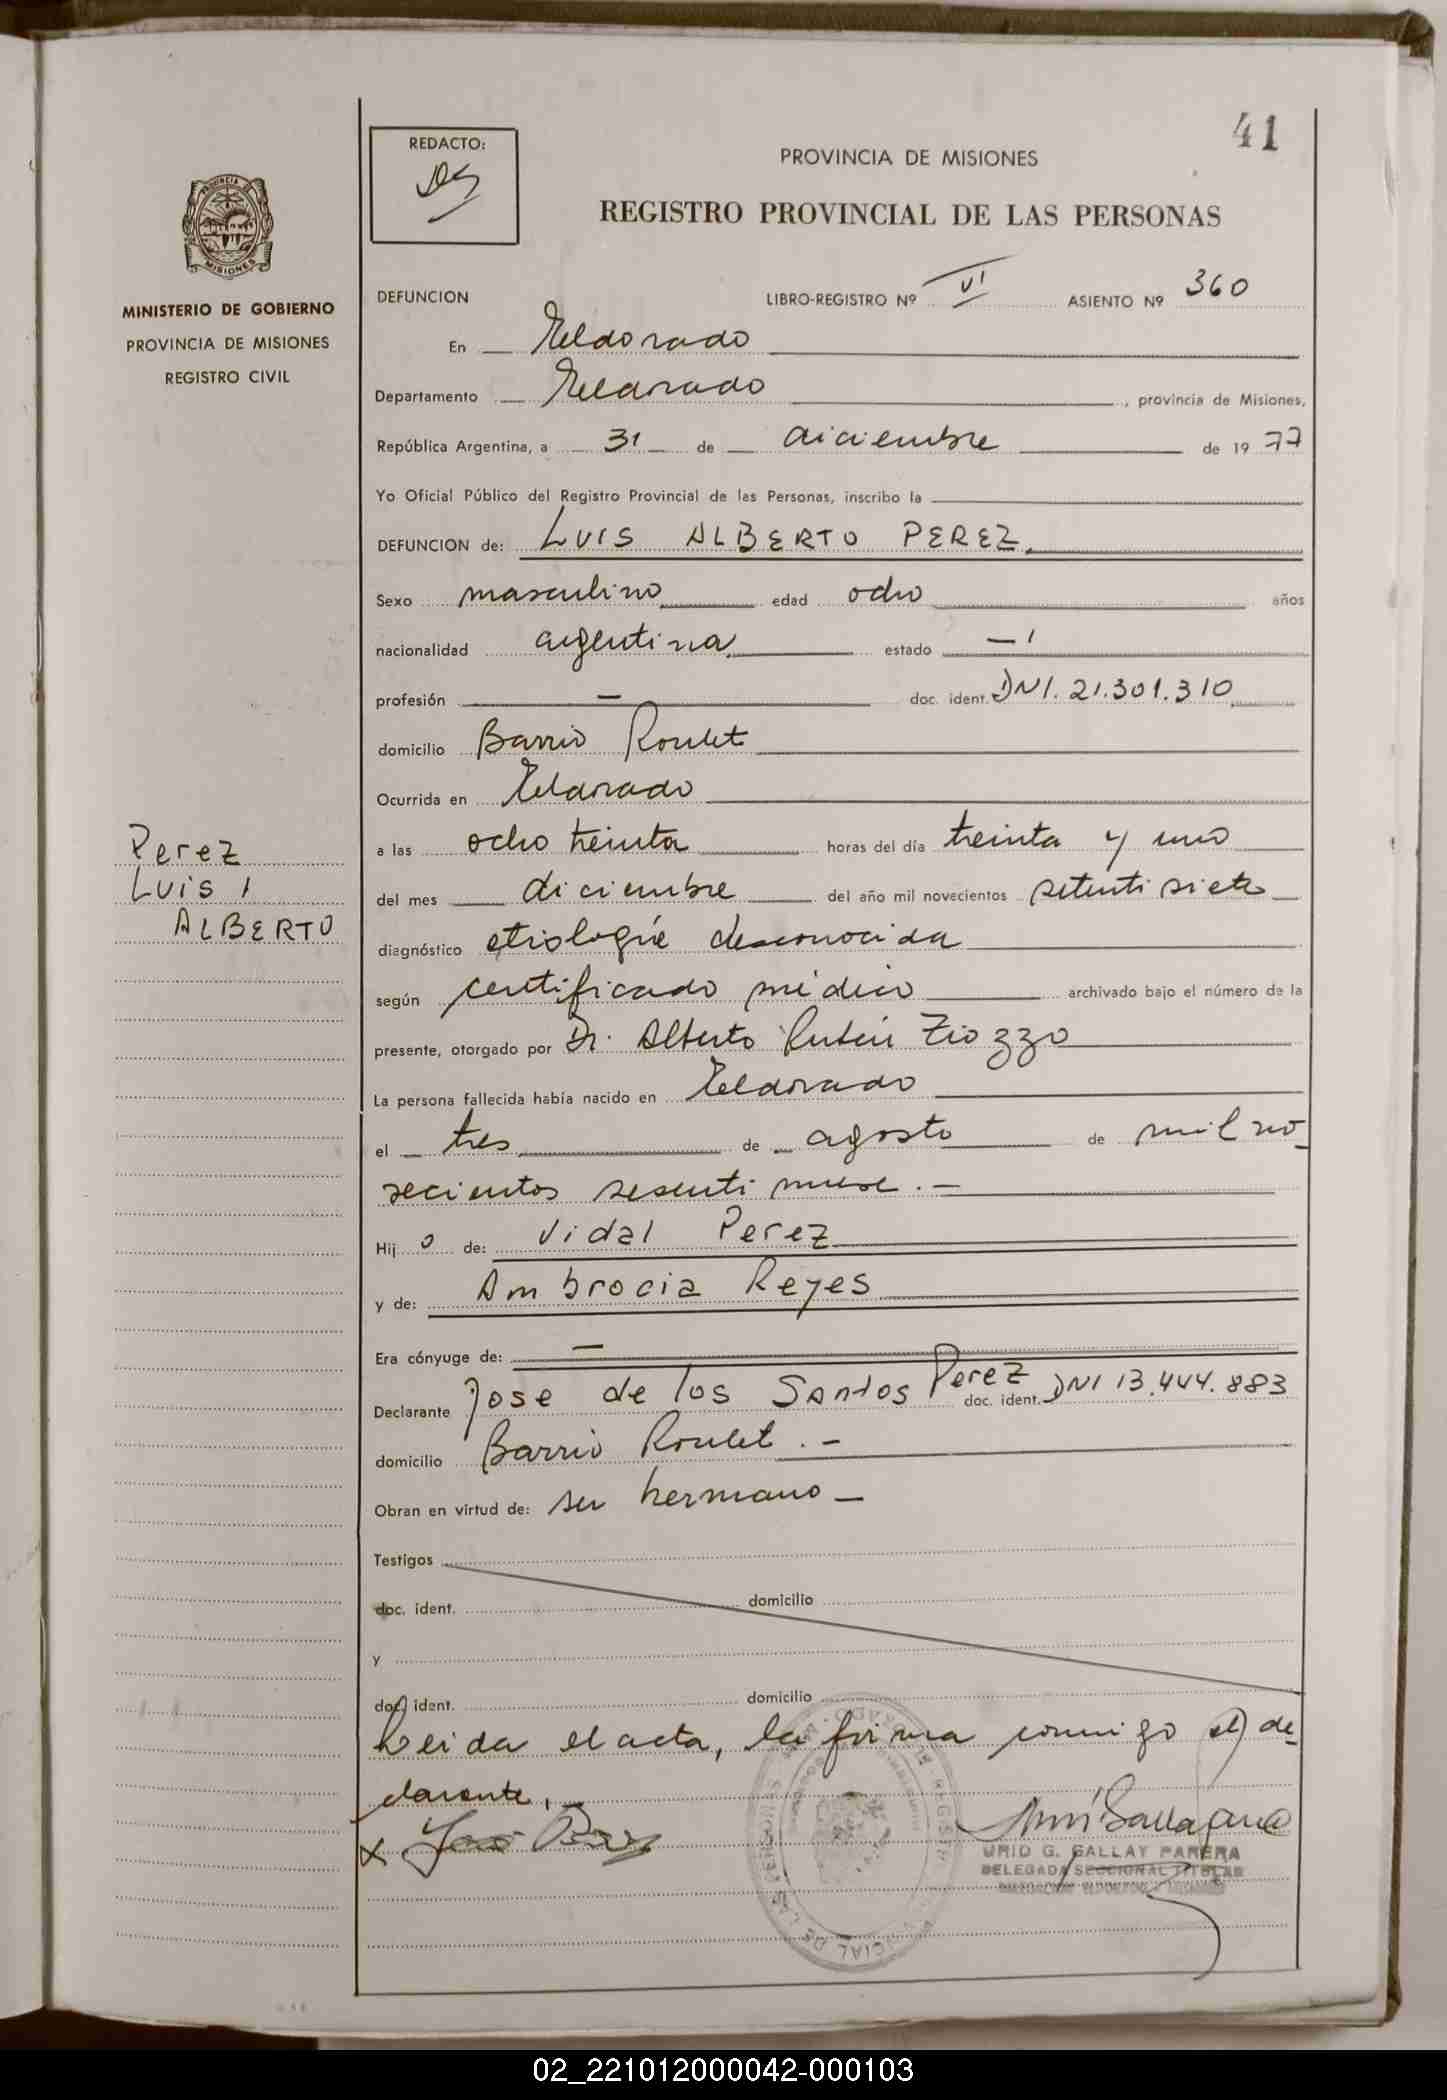 41
REDACTO:
PROVINCIA DE MISIONES
REGISTRO PROVINCIAL DE LAS PERSONAS
PROVINCIA DE
MISIONES
MINISTERIO DE GOBIERNO
PROVINCIA DE MISIONES
REGISTRO CIVIL
DEFUNCION LIBRO-REGISTRO Nº VI ASIENTO Nº 360
En Eldorado
Departamento Eldorado, provincia de Misiones,
República Argentina, a 31 de diciembre de 1977
Yo Oficial Público del Registro Provincial de las Personas, inscribo la
DEFUNCION de: LUIS ALBERTO PEREZ
Sexo masculino edad ocho años
nacionalidad argentina estado —
profesión — doc. ident. DNI. 21.301.310
domicilio Barrio Roulet
Ocurrida en Eldorado
a las ocho treinta horas del día treinta y uno
del mes diciembre del año mil novecientos setentisiete
diagnóstico etiologíe desconocida
según certificado médico archivado bajo el número de la
presente, otorgado por Dr. Alberto Rubén Tiozzo
La persona fallecida había nacido en Eldorado
el tres de agosto de mil no_
vecientos sesentinueve.-
Hijo de: Vidal Perez
y de: Ambrocia Reyes
Era cónyuge de: —
Declarante Jose de los Santos Perez doc. ident. DNI 13.444.883
domicilio Barrio Roulet.-
Obran en virtud de: su hermano -
Testigos
doc. ident. domicilio
y
doc. ident. domicilio
Leida el acta, la firma conmigo el de_
clarante,
x José
URID G. GALLAY PARERA
DELEGADA SECCIONAL TITULAR
Perez
Luis
ALBERTO
02_221012000042-000103